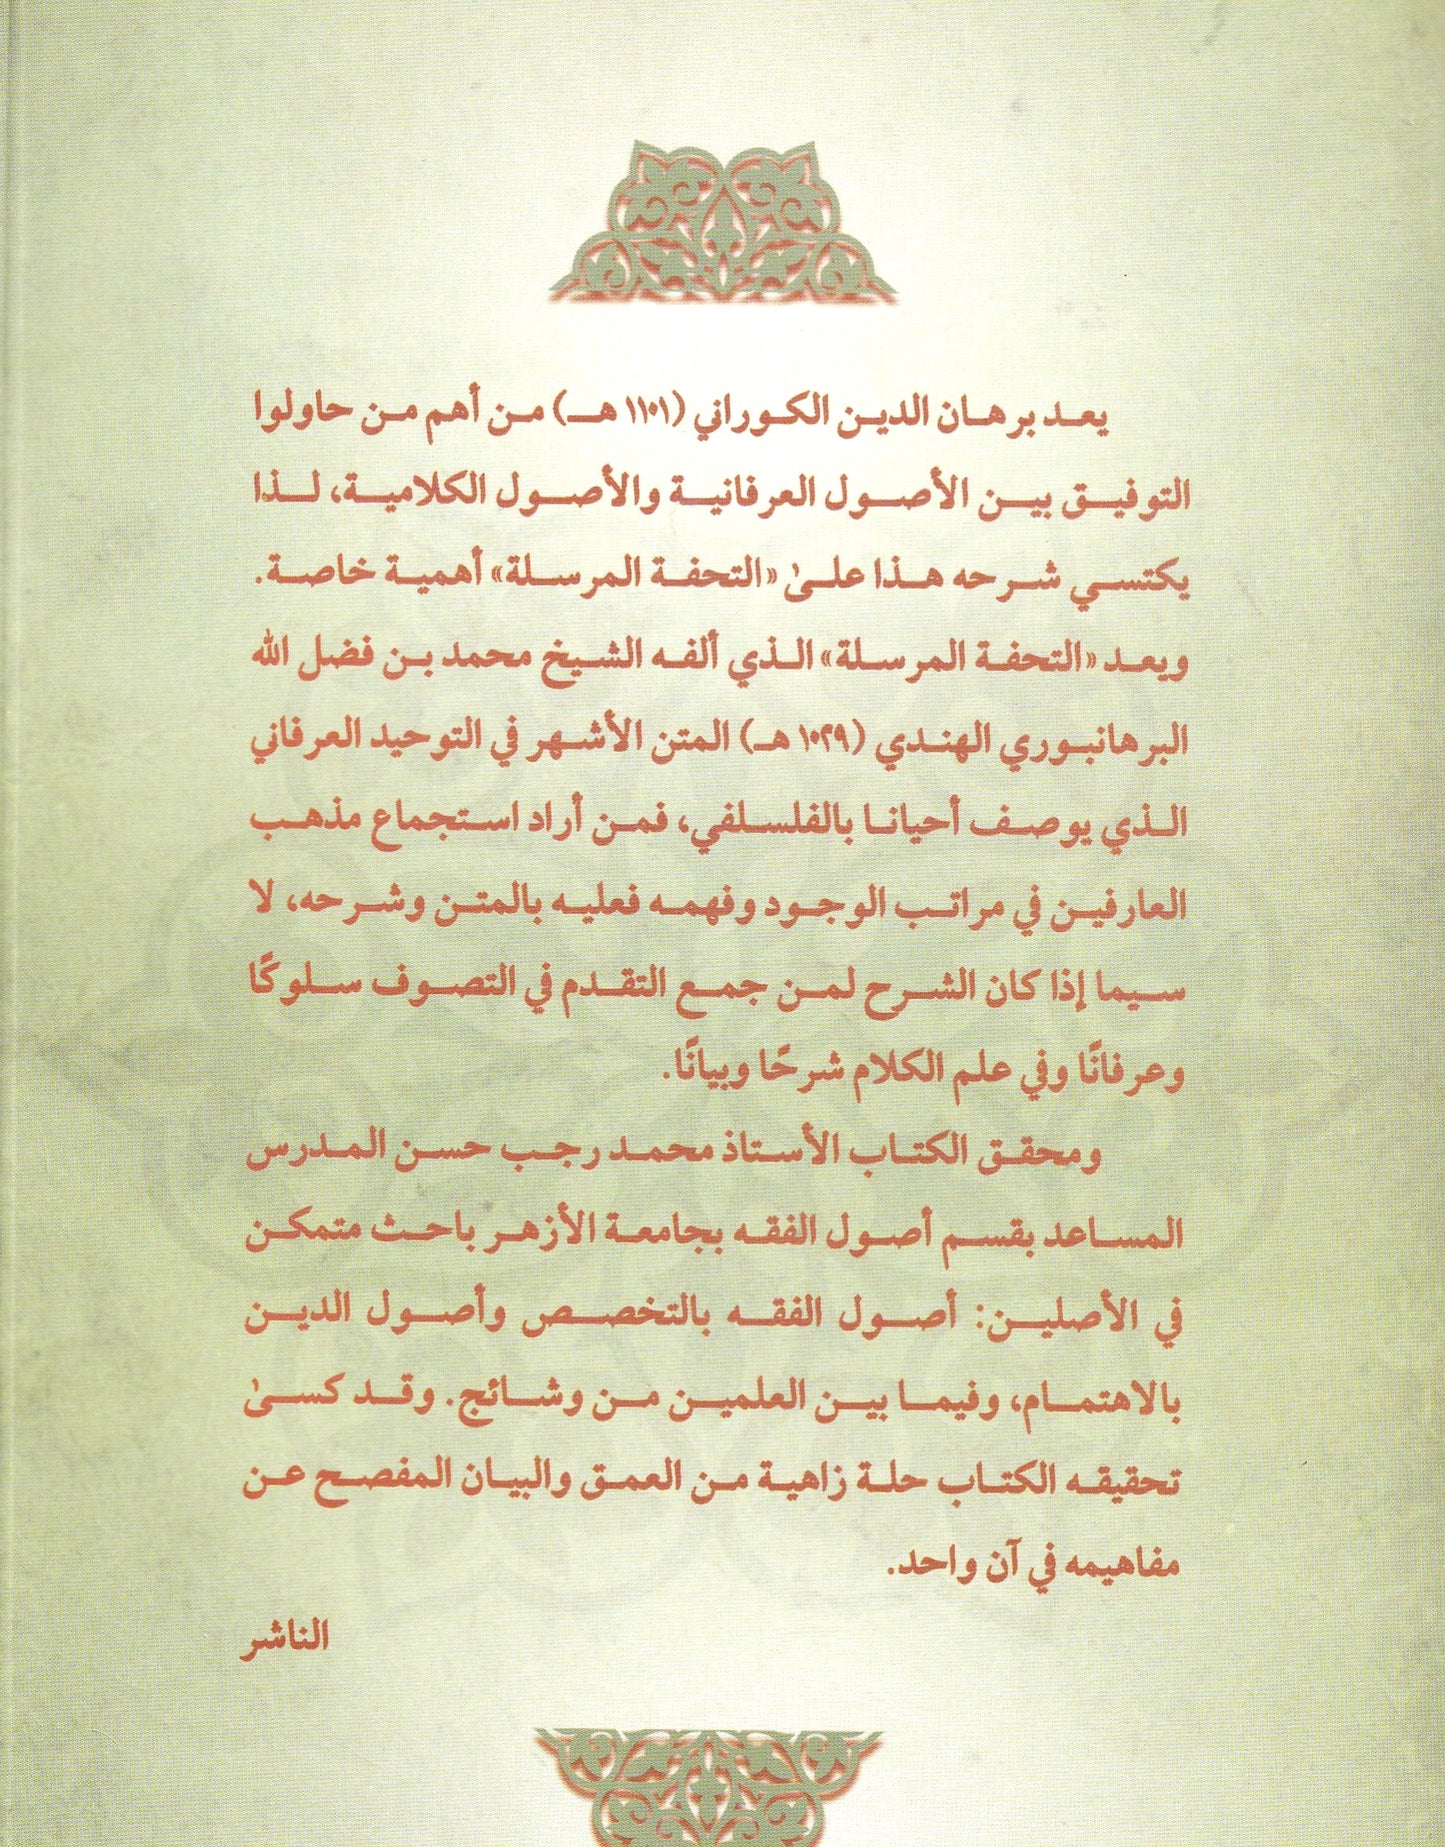 يعد برهان الدين الكوراني (١١٠١ هـ) من أهم من حاولوا
التوفيق بين الأصول العرفانية والأصول الكلامية، لذا
يكتسي شرحه هذا علىٰ «التحفة المرسلة» أهمية خاصة.
ويعد «التحفة المرسلة» الذي ألفه الشيخ محمد بن فضل الله
البرهانبوري الهندي (١٠٢٩ هـ) المتن الأشهر في التوحيد العرفاني
الذي يوصف أحيانا بالفلسلفي، فمن أراد استجماع مذهب
العارفين في مراتب الوجود وفهمه فعليه بالمتن وشرحه، لا
سيما إذا كان الشرح لمن جمع التقدم في التصوف سلوكًا
وعرفانًا وفي علم الكلام شرحًا وبيانًا.
ومحقق الكتاب الأستاذ محمد رجب حسن المدرس
المساعد بقسم أصول الفقه بجامعة الأزهر باحث متمكن
في الأصلين: أصول الفقه بالتخصص وأصول الدين
بالاهتمام، وفيما بين العلمين من وشائج. وقد كسىٰ
تحقيقه الكتاب حلة زاهية من العمق والبيان المفصح عن
مفاهيمه في آن واحد.
الناشر